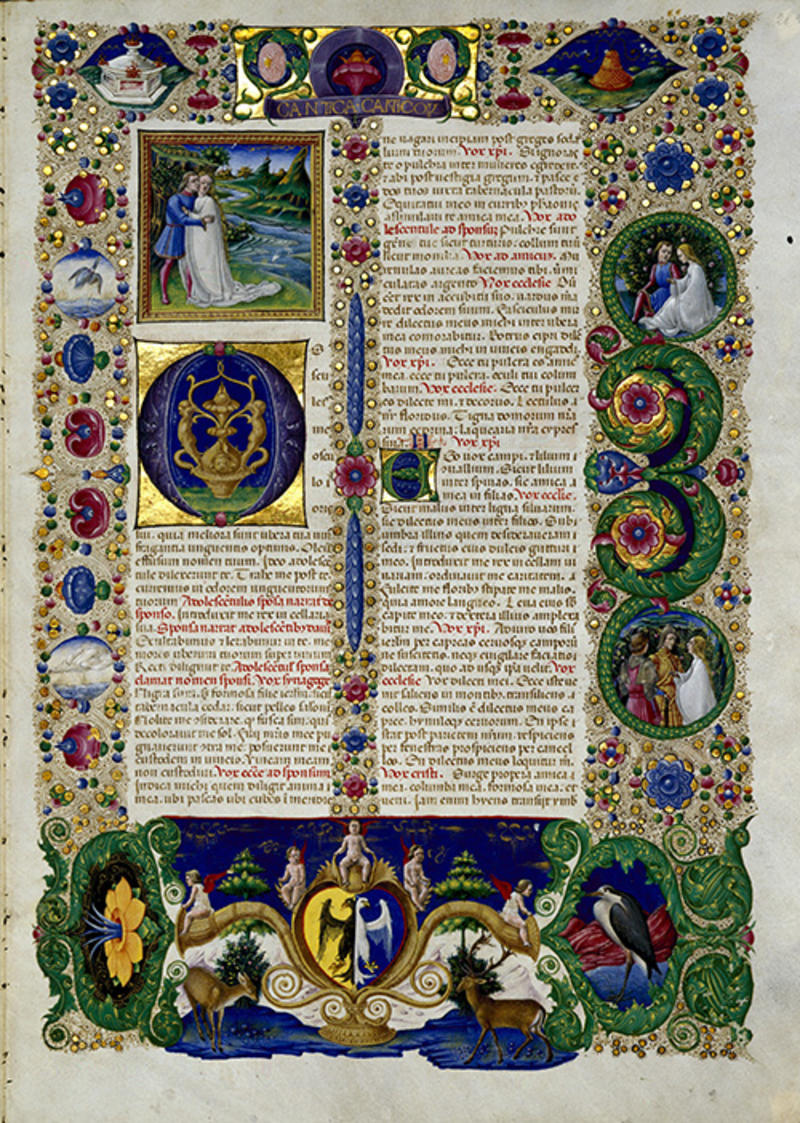 CANTICA CANTICOꝜ
O S
scu
let
me
oscu
lo
oris
sui. quia meliora sunt ubera tua uino
fragantia unguentis optimis. Oleum
effusum nomen tuum. Ideo adolescen
tule dilexerunt te. Trahe me post te.
curremus in odorem unguentorum
tuorum Adolescentulis sponsa narrat de
sponso. Introduxit me rex in cellaria
sua. Sponsa narrat adolescentibus
Exultabimus et letabimur in te. me
mores uberum tuorum super uinum
Recti diligunt te. Adolescentule sponsa
clamat nomen sponsi. Vox synagoge
Nigra sum. sed formosa filie ierusalem. sicut
tabernacula cedar. sicut pelles salomonis
Nolite me considerare. quod fusca sim. quia
decolorauit me sol. Filii matris mee pu
gnauerunt contra me. posuerunt me
custodem in uineis. Vineam meam
non custodiui. Vox ecclesie ad sponsum
Indica michi quem diligit anima
mea. ubi pascas ubi cubes in meridie
ne uagari incipiam post greges soda
lium tuorum. Vox xpi. Si ignoras
te o pulchra inter mulieres egredere
et abi post uestigia gregum. et pasce e
dos tuos iuxta tabernacula pastorum.
Equitatui meo in curribus pharaonis
assimilaui te amica mea. Vox ado
lescentule ad sponsam Pulchre sunt
gene tue sicut turturis. collum tuum
sicut monilia. Vox ad amicus. Mu
renulas aureas faciemus tibi. uermi
culatas argento Vox ecclesie Dum
esset rex in accubitu suo. nardus mea
dedit odorem suum. Fasciculus mir
re dilectus meus michi inter ubera
mea comorabitur. Botrus cipri dile
ctus meus michi in uineis engaddi.
Vox xpi. Ecce tu pulcra es amica
mea. ecce tu pulcra. oculi tui colum
barum. Vox ecclesie. Ecce tu pulcer
es dilecte mi. et decorus. Lectulus
noster floridus. Tigna domorum nostrarum
cedrina. laquearia nostra cypres
sina. II Vox xpi
Ego uox campi. et lilium
conuallium. Sicut lilium
inter spinas. sic amica
mea in filias. Vox ecclesie.
Sicut malus inter ligna siluarum.
sic dilectus meus inter filios. Sub
umbra illius quem desideraueram
sedi. et fructus eius dulcis gutturi
meo. Introduxit me rex in cellam ui
nariam. ordinauit me caritatem.
Fulcite me floribus stipate me malis.
quia amore langueo. Leua eius sub
capite meo. et dextera illius amplexa
bitur me. Vox xpi. Adiuro uos filie
ierusalem per capreas ceruosque camporum
ne suscitetis. neque euigilare faciatis
dilectam. quo ad usque ipsa uelit. Vox
ecclesie Vox dilecti mei. Ecce iste ue
nit saliens in montibus. transiliens
colles. Similis est dilectus meus ca
pree. hynuloque ceruorum. En ipse
stat post parietem nostrum. respiciens
per fenestras prospiciens per cancel
los. En dilectus meus loquitur michi.
Vox cristi. Surge propera amica
mea. columba mea. formosa mea. et
ueni. Iam enim hyens transijt ymb